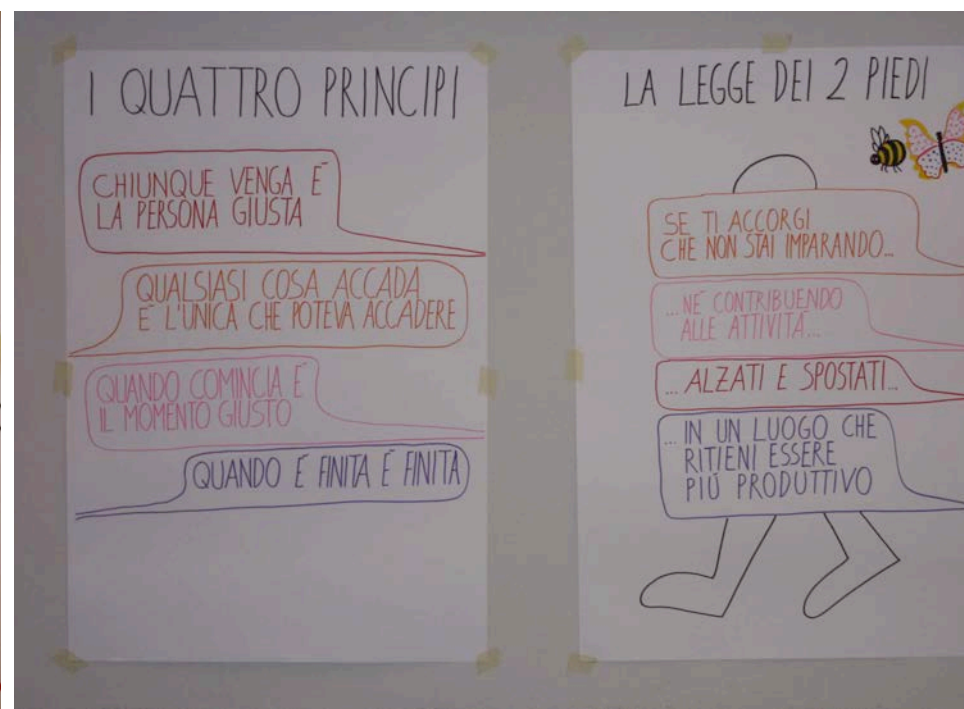 I QUATTRO PRINCIPI
CHIUNQUE VENGA É
LA PERSONA GIUSTA
QUALSIASI COSA ACCADA
É L'UNICA CHE POTEVA ACCADERE
QUANDO COMINCIA É
IL MOMENTO GIUSTO
QUANDO É FINITA É FINITA
LA LEGGE DEI 2 PIEDI
SE TI ACCORGI
CHE NON STAI IMPARANDO...
...NÉ CONTRIBUENDO
ALLE ATTIVITÁ...
...ALZATI E SPOSTATI...
...IN UN LUOGO CHE
RITIENI ESSERE
PIÚ PRODUTTIVO